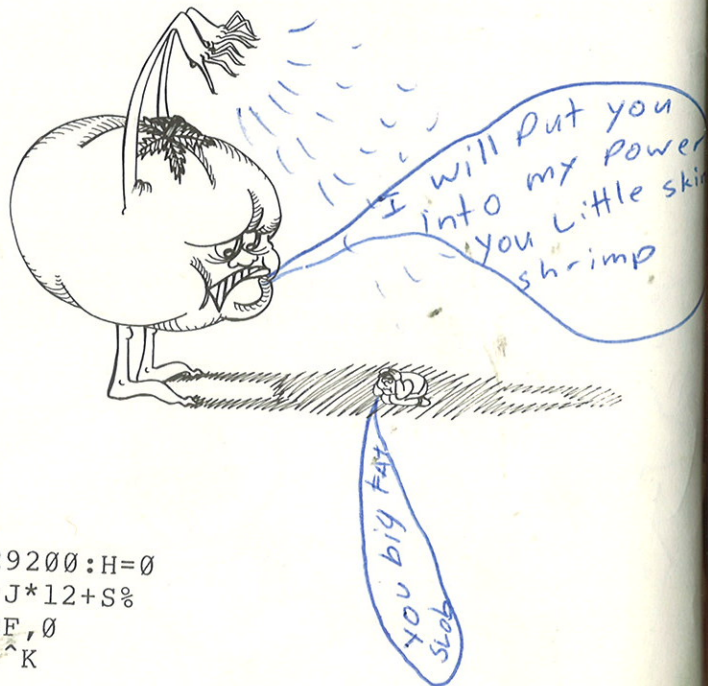 I will Put you
into my Power
you Little
shrimp
you big FAt
SLOb
9200:H=0
J*12+S%
F,0
^K